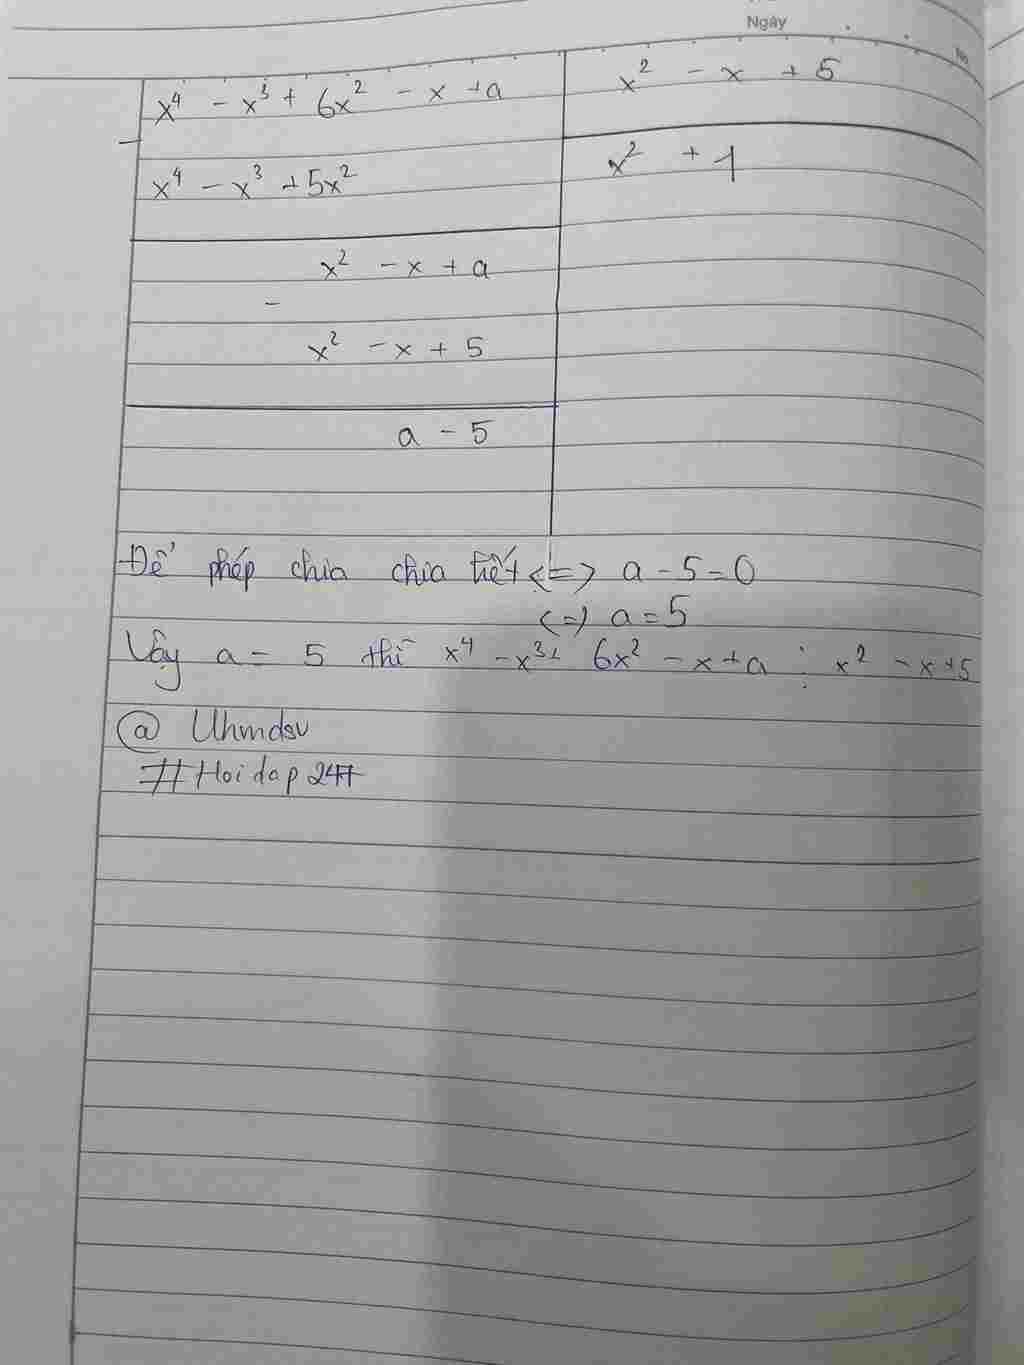 Ngày
No
x⁴ - x³ + 6x² - x + a
x² - x + 5
-
x⁴ - x³ + 5x²
x² + 1
x² - x + a
-
x² - x + 5
a - 5
Để phép chia chia hết <=> a - 5 = 0
<=> a = 5
Vậy a = 5 thì x⁴ - x³ + 6x² - x + a ⋮ x² - x + 5
@ Uhmdsu
#Hoidap247